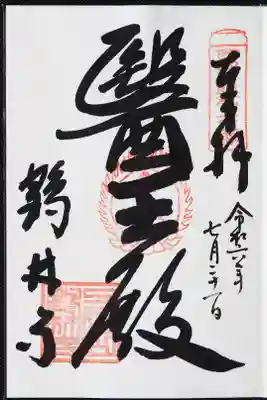 奉拝
令和六年
七月二十一日
醫王殿
鶴林寺